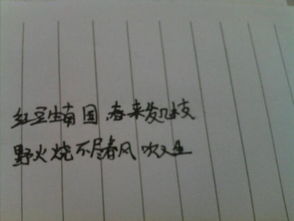 红豆生南国 春来发几枝
野火烧不尽春风吹又生